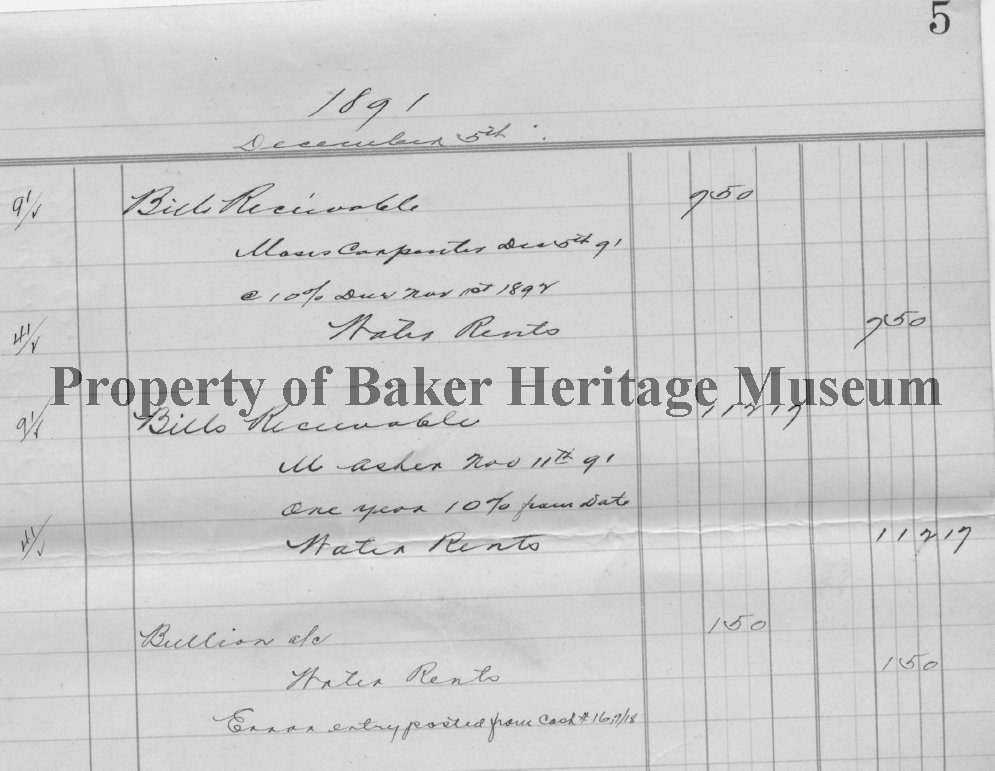 5
1891
December 5th
91/√ Bills Receivable 750
Moses Carpenter Dec 5th 91
@ 10% Due Nov 1st 1892
41/√ Water Rents 750
Property of Baker Heritage Museum
91/√ Bills Receivable 112 17
M Asher Nov 11th 91
One year 10% from Date
41/√ Water Rents 112 17
Bullion a/c 150
Water Rents 150
Error entry posted from Cash #